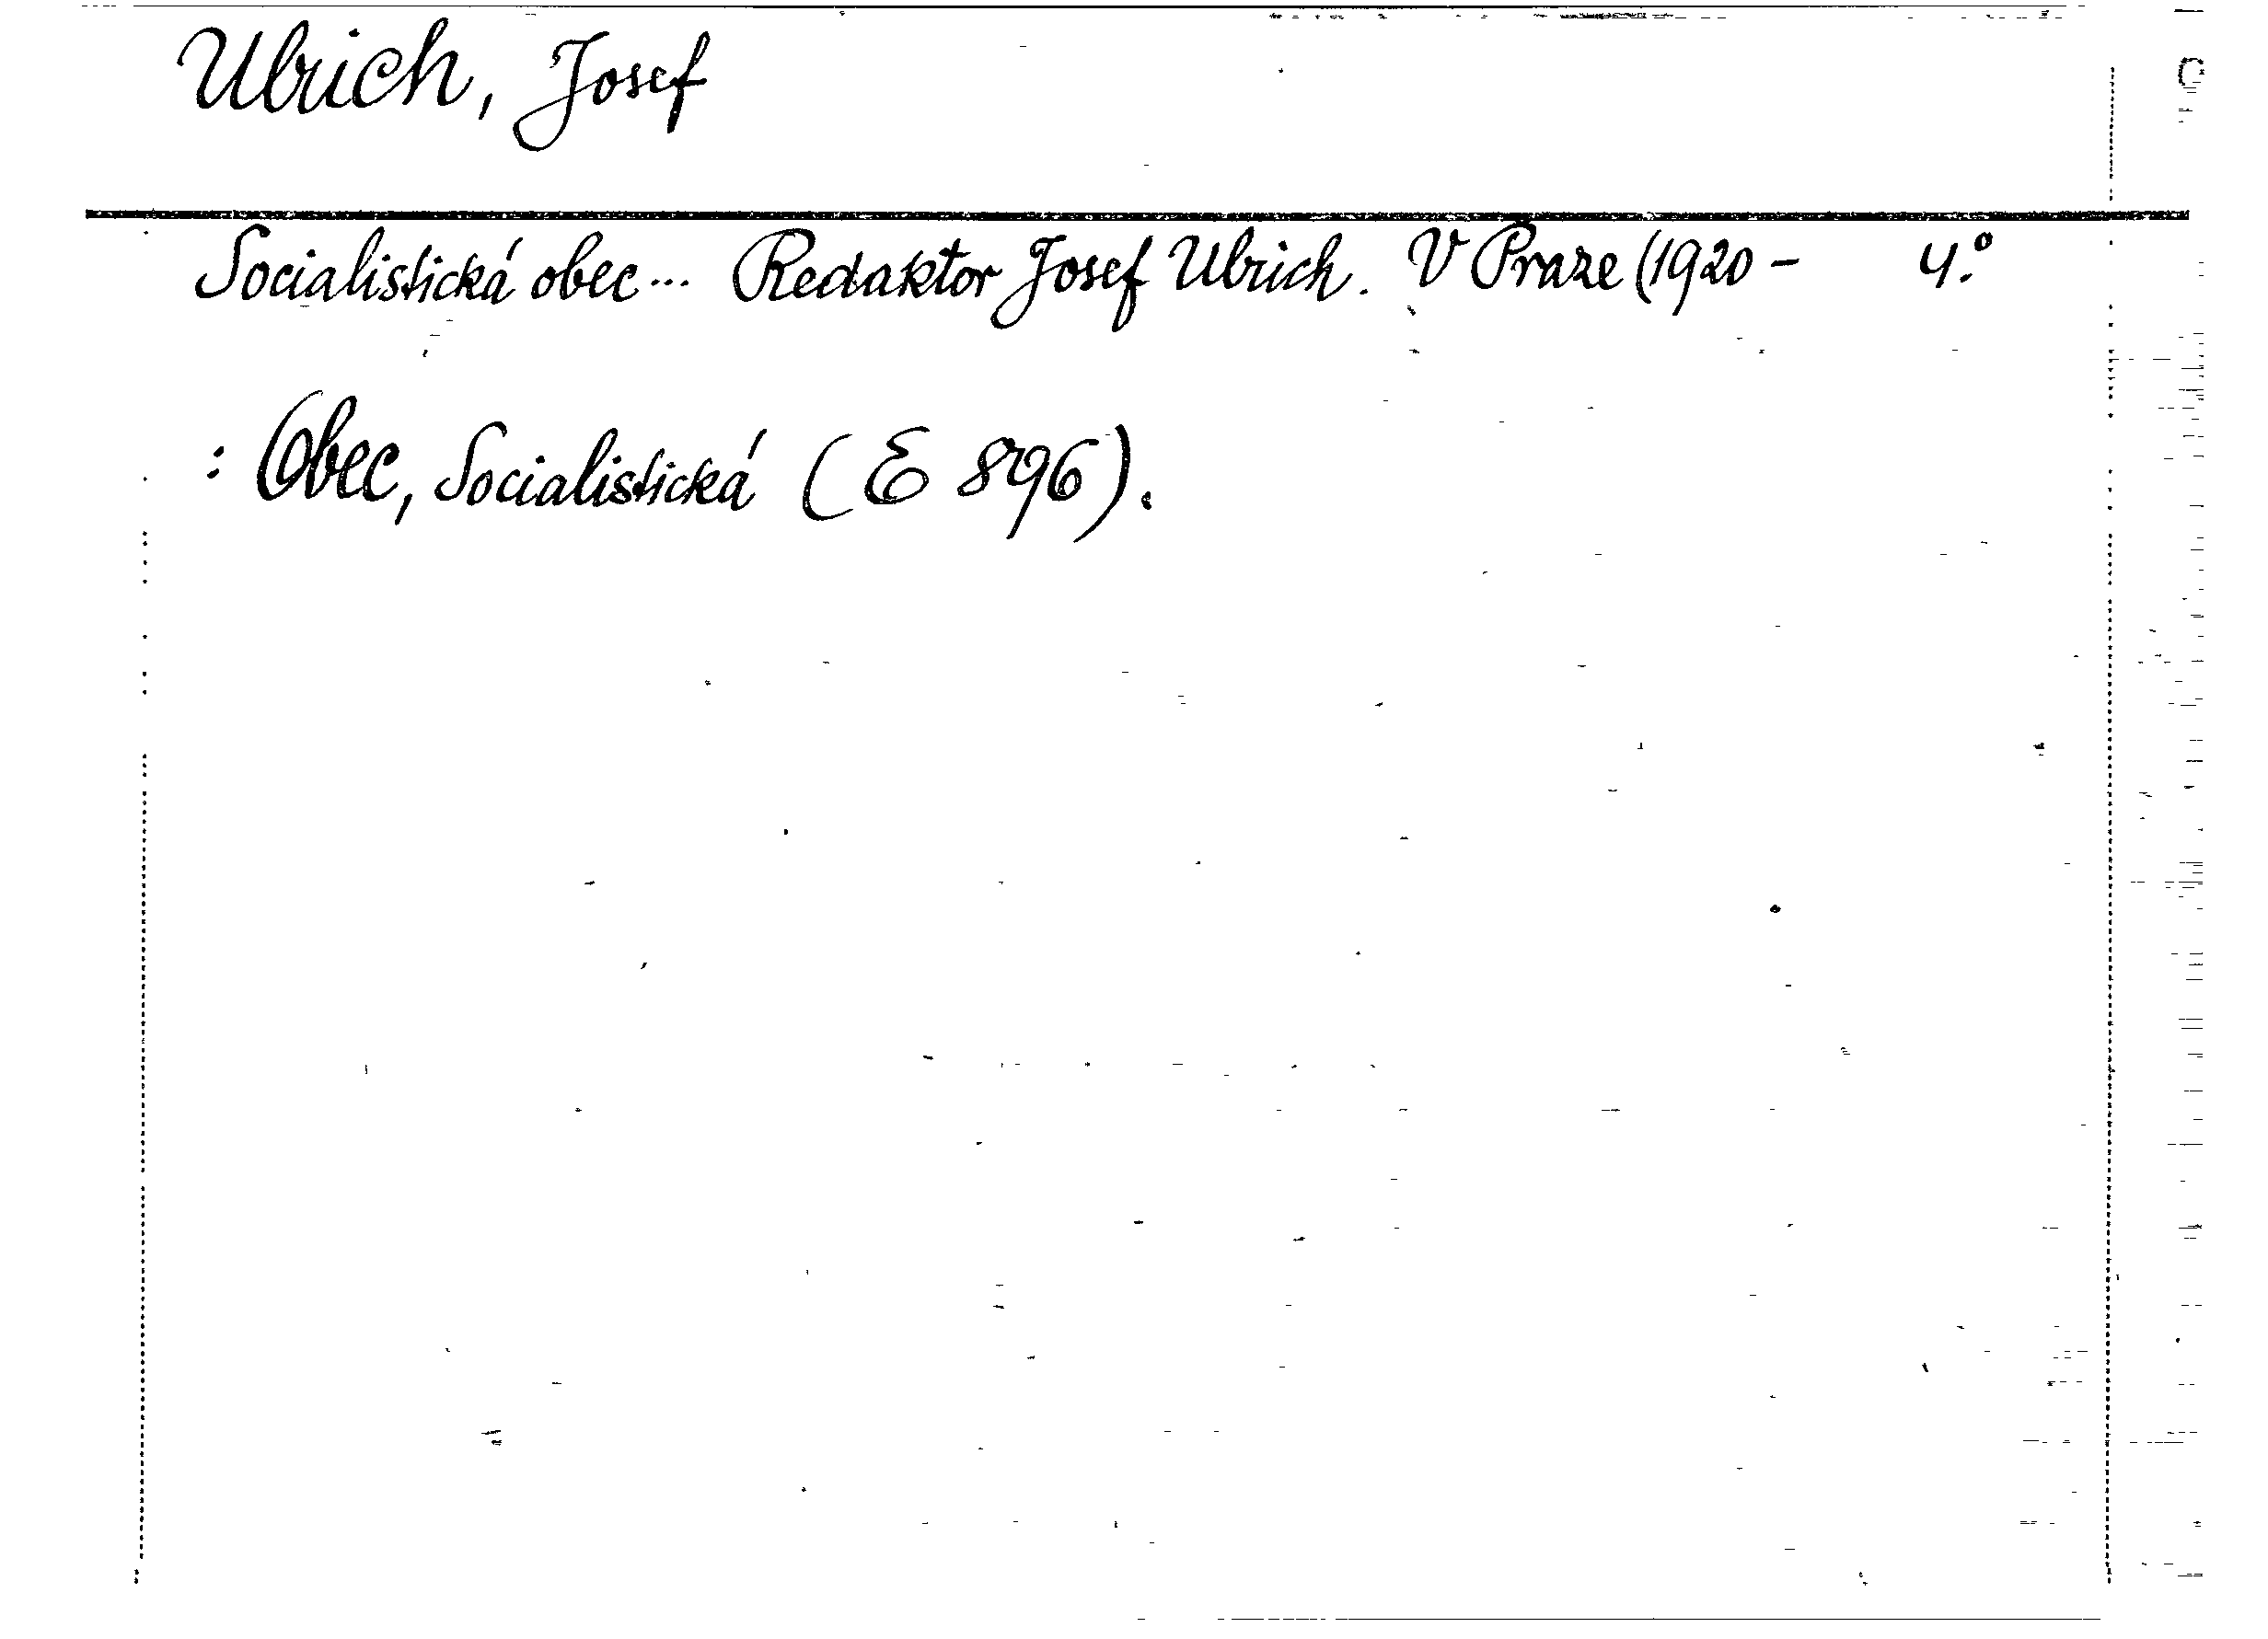 Ulrich, Josef
Socialistická obec... Redaktor Josef Ulrich. V Praze (1920 - 4.°
: Obec, Socialistická (E 896).